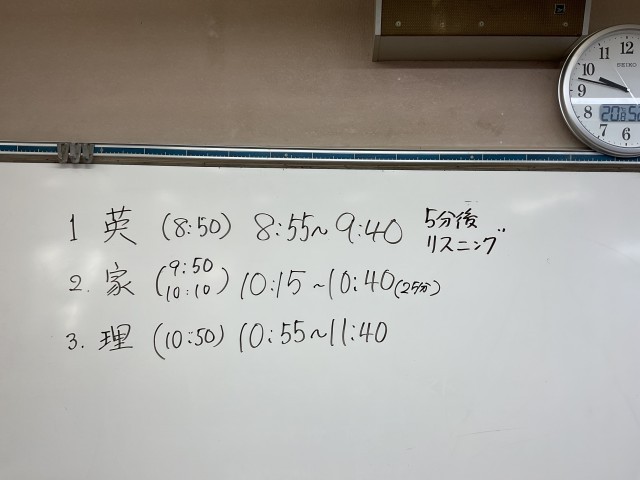 1 英 (8:50) 8:55~9:40 5分後
リスニング
2. 家 (9:50
10:10) 10:15~10:40(25分)
3. 理 (10:50) 10:55~11:40
SEIKO
11 12
10
9
8
7 6